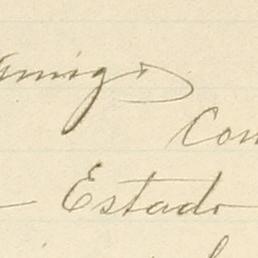 amigo
Con
Estado